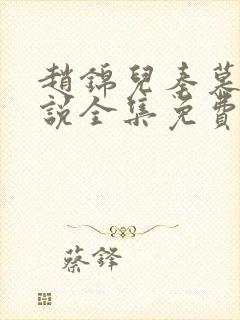 趙錦兒秦慕
說全集免費
蔡鋒